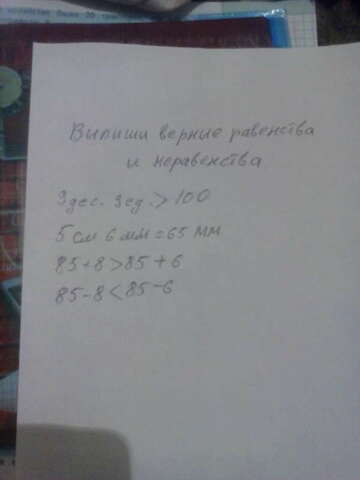 хозяйстве более 20 трак
Выпиши верные равенства
и неравенства
9 дес. 9 ед. > 100
5 см 6 мм = 65 мм
85 + 8 > 85 + 6
85 - 8 < 85 - 6